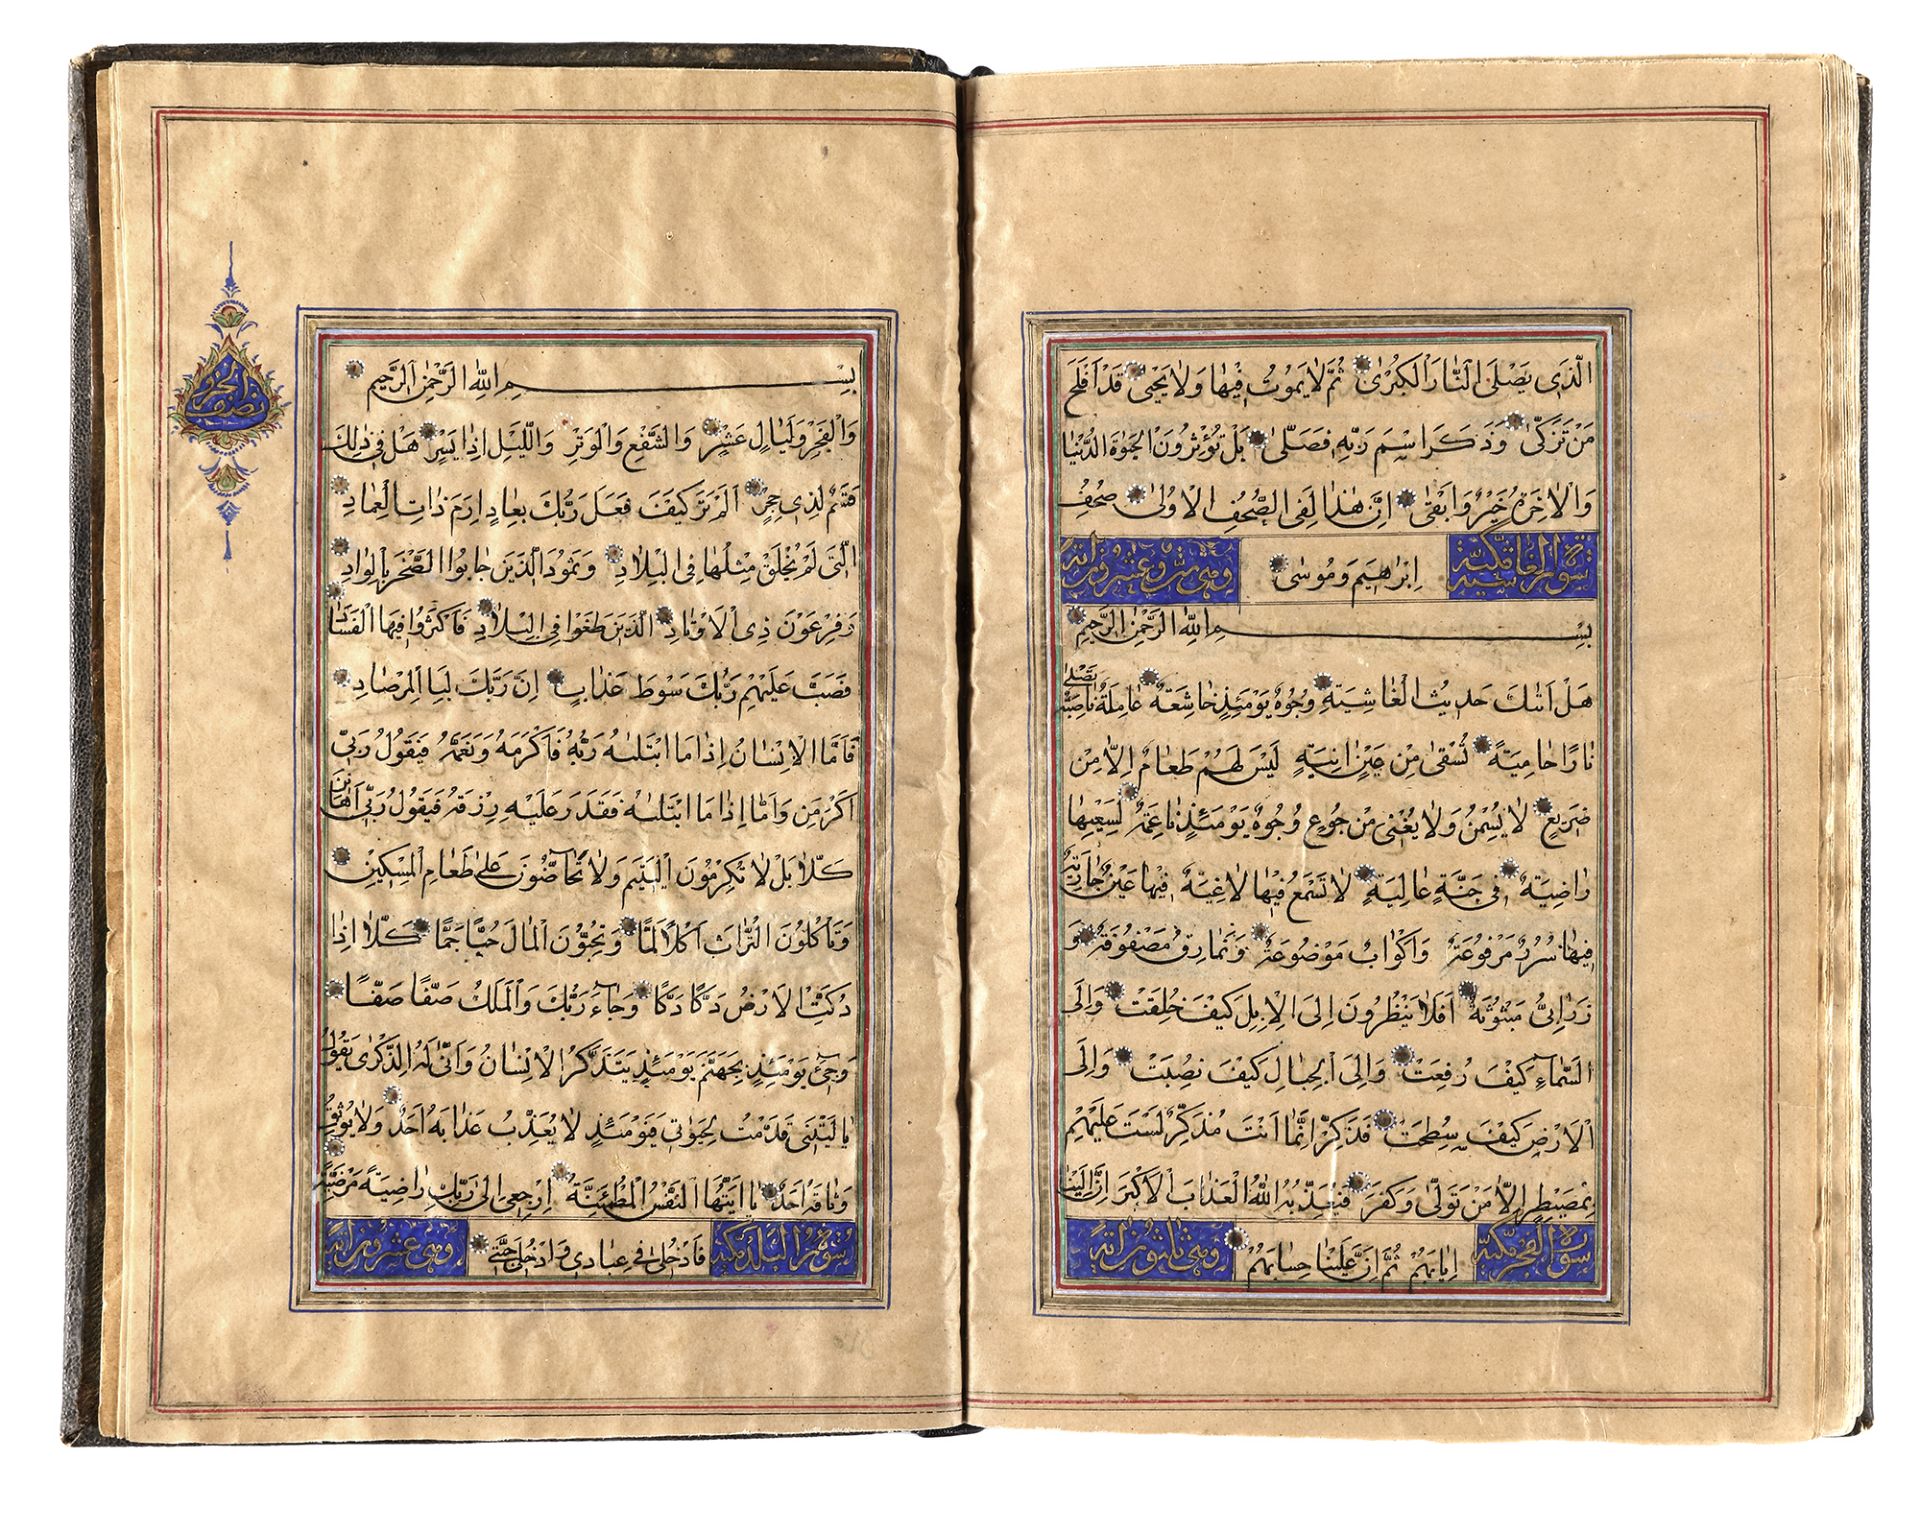 الَّذِى يَصْلَى النَّارَ الْكُبْرٰى ثُمَّ لَا يَمُوتُ فِيهَا وَلَا يَحْيٰى قَدْ اَفْلَحَ
مَنْ تَزَكّٰى وَذَكَرَ اسْمَ رَبِّهِ فَصَلّٰى بَلْ تُؤْثِرُونَ الْحَيٰوةَ الدُّنْيَا
وَالْاٰخِرَةُ خَيْرٌ وَاَبْقٰى اِنَّ هٰذَا لَفِى الصُّحُفِ الْاُولٰى صُحُفِ
سورة الغاشية مكية اِبْرٰهِيمَ وَمُوسٰى وهى ست وعشرون اية
بِسْمِ اللّٰهِ الرَّحْمٰنِ الرَّحِيمِ
هَلْ اَتٰىكَ حَدِيثُ الْغَاشِيَةِ وُجُوهٌ يَوْمَئِذٍ خَاشِعَةٌ عَامِلَةٌ نَاصِبَةٌ تَصْلٰى
نَارًا حَامِيَةً تُسْقٰى مِنْ عَيْنٍ اٰنِيَةٍ لَيْسَ لَهُمْ طَعَامٌ اِلَّا مِنْ
ضَرِيعٍ لَا يُسْمِنُ وَلَا يُغْنِى مِنْ جُوعٍ وُجُوهٌ يَوْمَئِذٍ نَاعِمَةٌ لِسَعْيِهَا
رَاضِيَةٌ فِى جَنَّةٍ عَالِيَةٍ لَا تَسْمَعُ فِيهَا لَاغِيَةً فِيهَا عَيْنٌ جَارِيَةٌ
فِيهَا سُرُرٌ مَرْفُوعَةٌ وَاَكْوَابٌ مَوْضُوعَةٌ وَنَمَارِقُ مَصْفُوفَةٌ وَ
زَرَابِىُّ مَبْثُوثَةٌ اَفَلَا يَنْظُرُونَ اِلَى الْاِبِلِ كَيْفَ خُلِقَتْ وَاِلَى
السَّمَاءِ كَيْفَ رُفِعَتْ وَاِلَى الْجِبَالِ كَيْفَ نُصِبَتْ وَاِلَى
الْاَرْضِ كَيْفَ سُطِحَتْ فَذَكِّرْ اِنَّمَا اَنْتَ مُذَكِّرٌ لَسْتَ عَلَيْهِمْ
بِمُصَيْطِرٍ اِلَّا مَنْ تَوَلّٰى وَكَفَرَ فَيُعَذِّبُهُ اللّٰهُ الْعَذَابَ الْاَكْبَرَ اِنَّ اِلَيْنَا
سورة الفجر مكية اِيَابَهُمْ ثُمَّ اِنَّ عَلَيْنَا حِسَابَهُمْ وهى ثلثون اية
بِسْمِ اللّٰهِ الرَّحْمٰنِ الرَّحِيمِ
وَالْفَجْرِ وَلَيَالٍ عَشْرٍ وَالشَّفْعِ وَالْوَتْرِ وَاللَّيْلِ اِذَا يَسْرِ هَلْ فِى ذٰلِكَ
قَسَمٌ لِذِى حِجْرٍ اَلَمْ تَرَ كَيْفَ فَعَلَ رَبُّكَ بِعَادٍ اِرَمَ ذَاتِ الْعِمَادِ
الَّتِى لَمْ يُخْلَقْ مِثْلُهَا فِى الْبِلَادِ وَثَمُودَ الَّذِينَ جَابُوا الصَّخْرَ بِالْوَادِ
وَفِرْعَوْنَ ذِى الْاَوْتَادِ الَّذِينَ طَغَوْا فِى الْبِلَادِ فَاَكْثَرُوا فِيهَا الْفَسَادَ
فَصَبَّ عَلَيْهِمْ رَبُّكَ سَوْطَ عَذَابٍ اِنَّ رَبَّكَ لَبِالْمِرْصَادِ
فَاَمَّا الْاِنْسَانُ اِذَا مَا ابْتَلٰىهُ رَبُّهُ فَاَكْرَمَهُ وَنَعَّمَهُ فَيَقُولُ رَبِّى
اَكْرَمَنِ وَاَمَّا اِذَا مَا ابْتَلٰىهُ فَقَدَرَ عَلَيْهِ رِزْقَهُ فَيَقُولُ رَبِّى اَهَانَنِ
كَلَّا بَلْ لَا تُكْرِمُونَ الْيَتِيمَ وَلَا تَحَاضُّونَ عَلٰى طَعَامِ الْمِسْكِينِ
وَتَاْكُلُونَ التُّرَاثَ اَكْلًا لَمًّا وَتُحِبُّونَ الْمَالَ حُبًّا جَمًّا كَلَّا اِذَا
دُكَّتِ الْاَرْضُ دَكًّا دَكًّا وَجَاءَ رَبُّكَ وَالْمَلَكُ صَفًّا صَفًّا
وَجِىءَ يَوْمَئِذٍ بِجَهَنَّمَ يَوْمَئِذٍ يَتَذَكَّرُ الْاِنْسَانُ وَاَنّٰى لَهُ الذِّكْرٰى يَقُولُ
يَا لَيْتَنِى قَدَّمْتُ لِحَيٰوتِى فَيَوْمَئِذٍ لَا يُعَذِّبُ عَذَابَهُ اَحَدٌ وَلَا يُوثِقُ
وَثَاقَهُ اَحَدٌ يَا اَيَّتُهَا النَّفْسُ الْمُطْمَئِنَّةُ اِرْجِعِى اِلٰى رَبِّكِ رَاضِيَةً مَرْضِيَّةً
سورة البلد مكية فَادْخُلِى فِى عِبَادِى وَادْخُلِى جَنَّتِى وهى عشرون اية
نصف الجزو